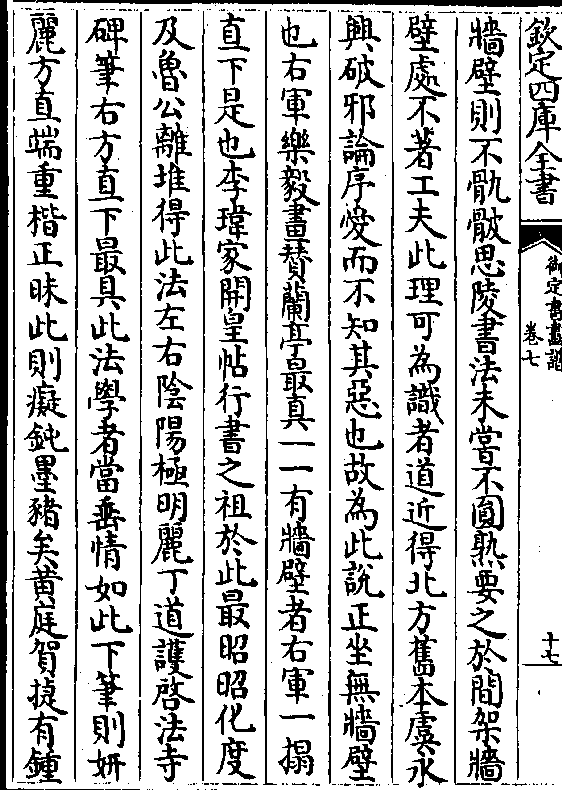 欽定四庫全書
御定書畫譜
卷七
十七
牆壁則不骫骳思陵書法未嘗不圓熟要之於間架牆
壁處不著工夫此理可為識者道近得北方舊本虞永
興破邪論序愛而不知其惡也故為此說正坐無牆壁
也右軍樂毅畫賛蘭亭最真一一有牆壁者右軍一搨
直下是也李瑋家開皇帖行書之祖於此最昭昭化度
及魯公離堆得此法左右陰陽極明麗丁道護啓法寺
碑筆右方直下最具此法學者當垂情如此下筆則妍
麗方直端重楷正昧此則癡鈍墨豬矣黄庭賀捷有鍾